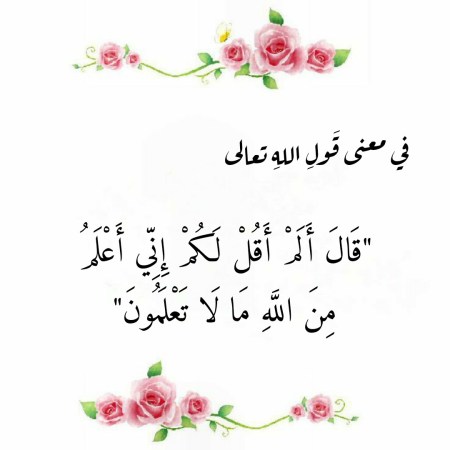 في معنى قَولِ اللهِ تعالى
"قَالَ أَلَمْ أَقُلْ لَكُمْ إِنِّي أَعْلَمُ
مِنَ اللَّهِ مَا لَا تَعْلَمُونَ"